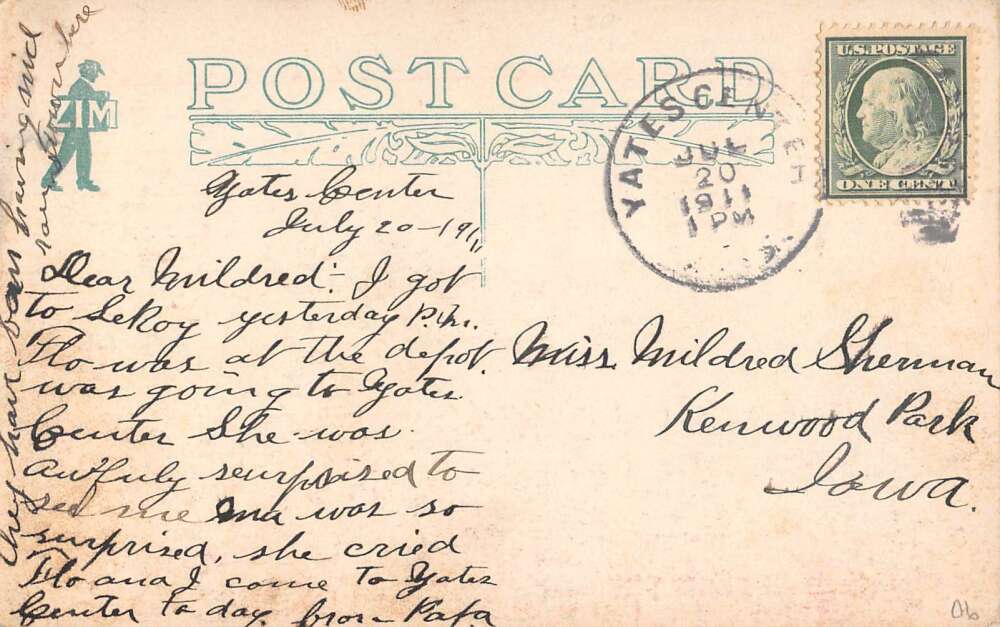 POST CARD
ZIM
YATES CENTER
JUL
20
1911
1 PM
U.S. POSTAGE
ONE CENT
Yates Center
July 20-1911
Dear Mildred:- I got
to LeRoy yesterday P.M.
Flo was at the depot.
was going to Yates
Center She was
awfuly seurprised to
see me ma was so
surprised, she cried
Flo and I came to Yates
Center to day. from Papa
They have ben having nice
rain down here
Miss. Mildred Sherman
Kenwood Park
Iowa.